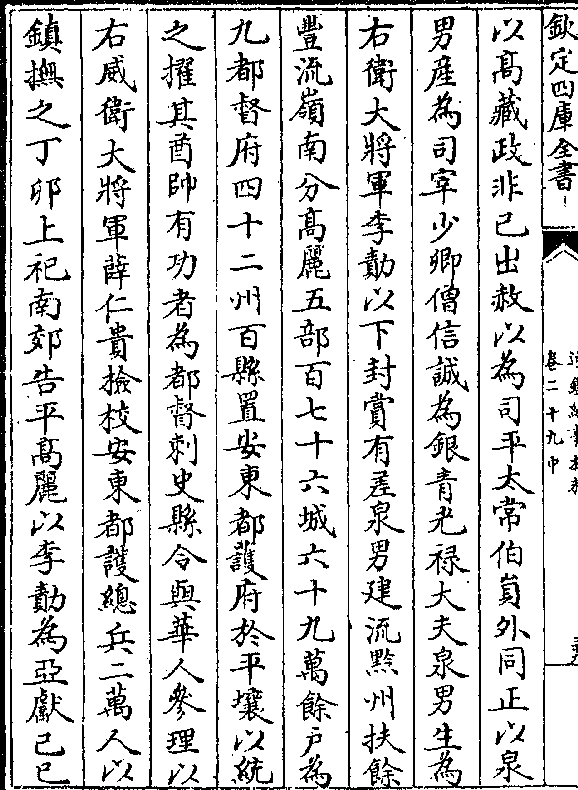 欽定四庫全書
卷二十九中
以高藏政非已出赦以為司平太常伯員外同正以泉
男産為司宰少卿僧信誠為銀青光禄大夫泉男生為
右衛大將軍李勣以下封賞有差泉男建流黔州扶餘
豐流嶺南分高麗五部百七十六城六十九萬餘戶為
九都督府四十二州百縣置安東都護府於平壤以統
之擢其酋帥有功者為都督刺史縣令與華人參理以
右威衛大將軍薛仁貴撿校安東都護總兵二萬人以
鎮撫之丁卯上祀南郊告平高麗以李勣為亞獻己巳